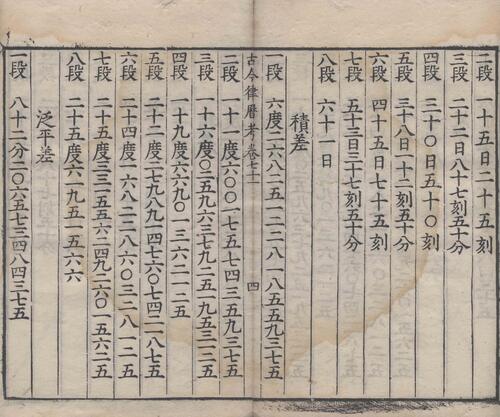 二段 一十五日二十五刻
三段 二十二日八十七刻五十分
四段 三十〇日五十〇刻
五段 三十八日一十二刻五十分
六段 四十五日七十五刻
七段 五十三日三十七刻五十分
八段 六十一日
積差
一段 六度二六八二五一二二八一八五五九三七五
古今律暦考 卷七十一 四
二段 一十一度六〇〇一七五七四三五九三七五
三段 一十六度〇二五九六三七九二五一九五三一二五
四段 一十九度六六九〇一三六二一二五
五段 二十二度一七九八九一四六〇七四二一八七五
六段 二十四度一六八二二八六〇三二八一二五
七段 二十五度三三二五五六二四九二六〇一五六二五
八段 二十五度六一九五一五六六
泛平差
一段 八十二分二〇六五七三四八四三七五